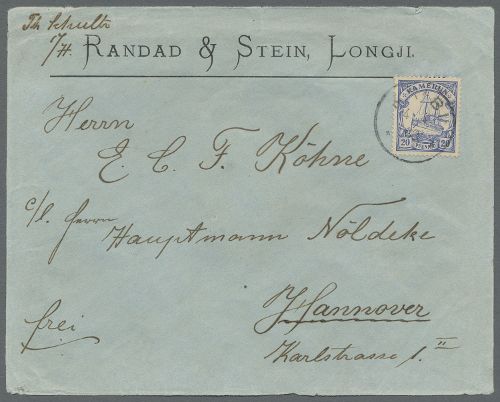 Th Schultz
RANDAD & STEIN, LONGJI.
KAMERUN
20 20
Herrn
E. C. F. Köhne
c/l. Herrn
Hauptmann Nöldeke
Hannover
frei
Karlstrasse 1. II